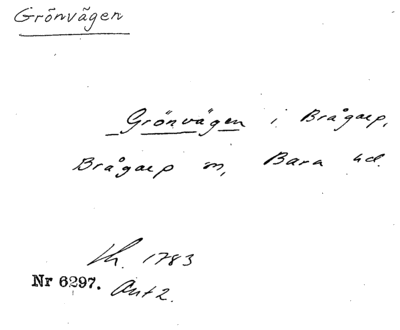 Grönvägen
Grönvägen i Brågarp,
Brågarp sn, Bara hd.
Lh. 1783
Nr 6297. Ant 2.